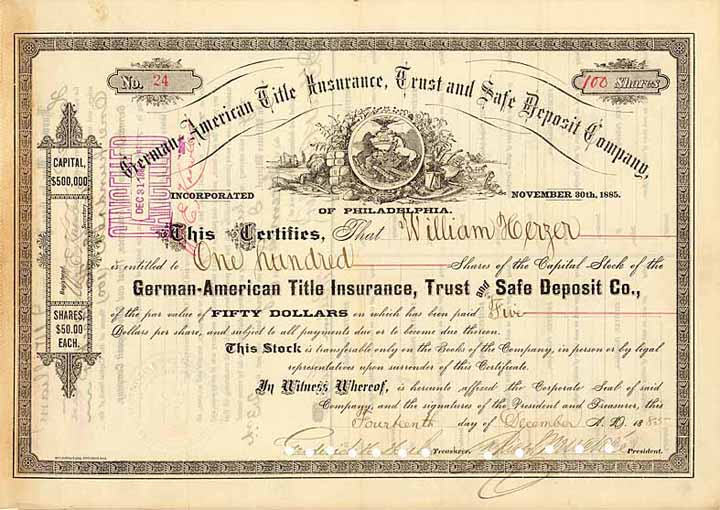 No. 24
100 Shares
German-American Title Insurance, Trust and Safe Deposit Company,
CAPITAL, $500,000
CANCELLED
DEC 31
CANCELLED
INCORPORATED
NOVEMBER 30th, 1885.
OF PHILADELPHIA.
This Certifies, That William Herzer
is entitled to One hundred Shares of the Capital Stock of the
German-American Title Insurance, Trust and Safe Deposit Co.,
of the par value of FIFTY DOLLARS on which has been paid Five
Dollars per share, and subject to all payments due or to become due thereon.
SHARES, $50.00 EACH.
This Stock is transferable only on the Books of the Company, in person or by legal
representatives upon surrender of this Certificate.
In Witness Whereof, is hereunto affixed the Corporate Seal of said
Company, and the signatures of the President and Treasurer, this
Fourteenth day of December A. D. 1885
Treasurer.
President.